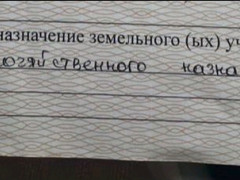 назначение земельного (ых) уч
хозяйственного назна